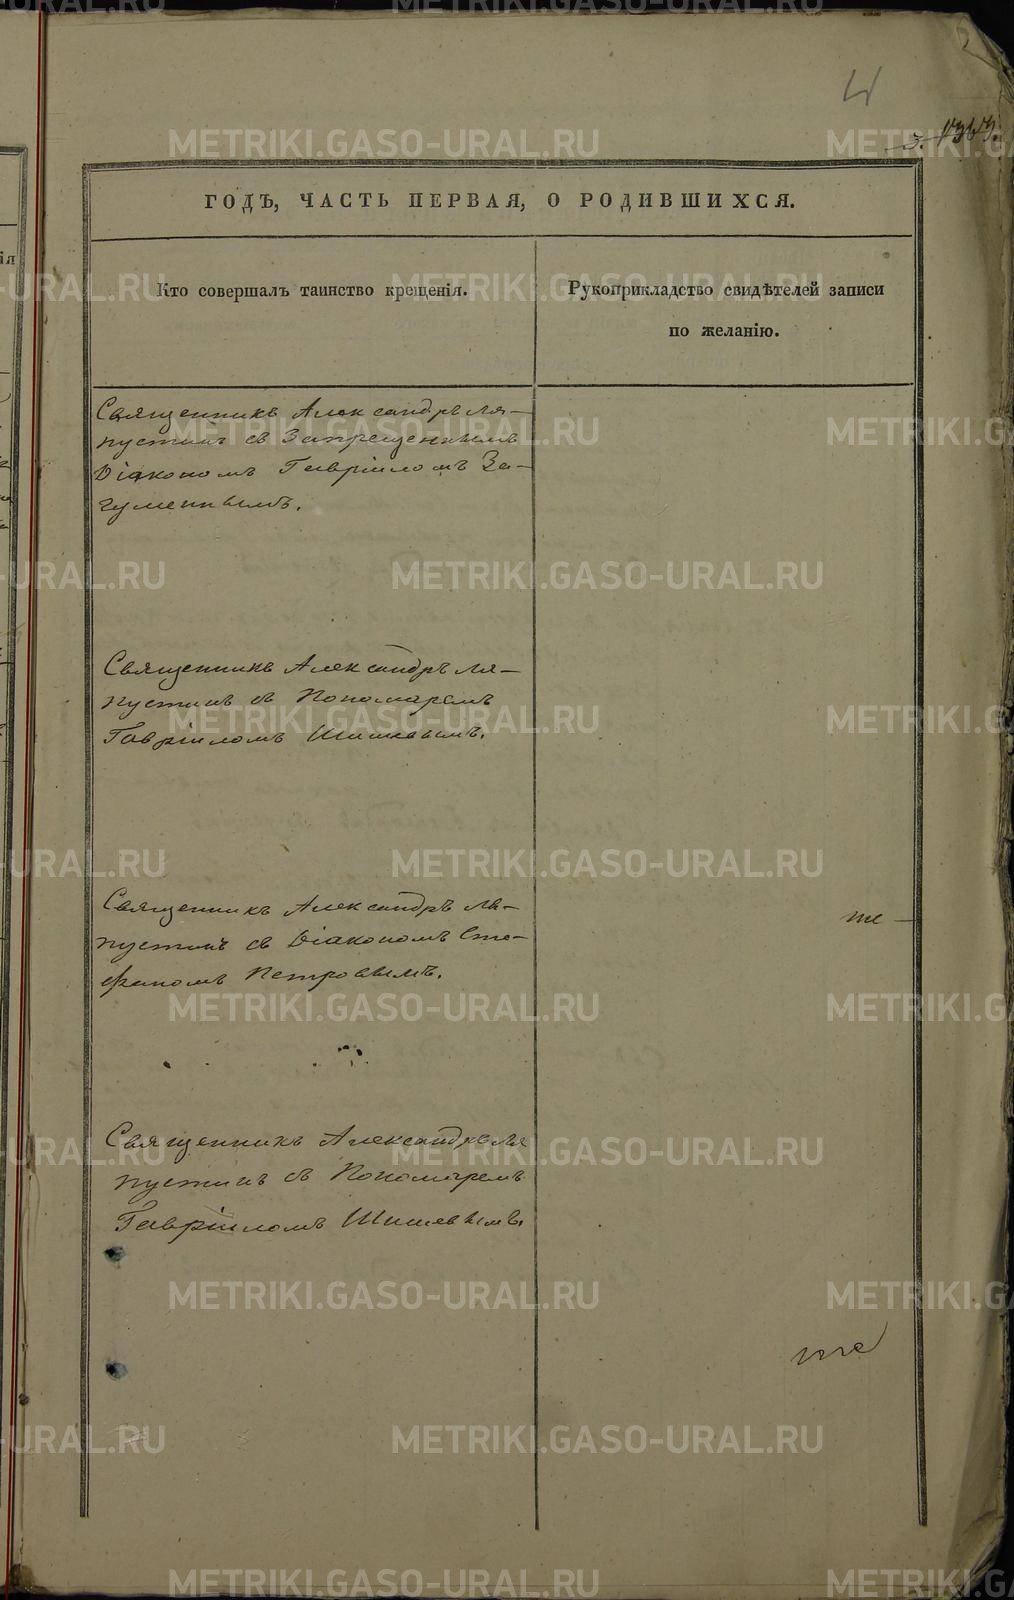 4
ГОДЪ, ЧАСТЬ ПЕРВАЯ, О РОДИВШИХСЯ.
Кто совершалъ таинство крещенія.
Рукоприкладство свидѣтелей записи
по желанію.
Священникъ Александръ Ля-
пустинъ съ Запрещеннымъ
Діакономъ Гавріиломъ За-
гуменнымъ.
Священникъ Александръ Ля-
пустинъ съ Пономаремъ
Гавріиломъ Шишевымъ.
Священникъ Александръ Ля-
пустинъ съ Діакономъ Сте-
фаномъ Петровымъ.
Священникъ Александръ Ля
пустинъ съ Пономаремъ
Гавріиломъ Шишевымъ.
METRIKI.GASO-URAL.RU